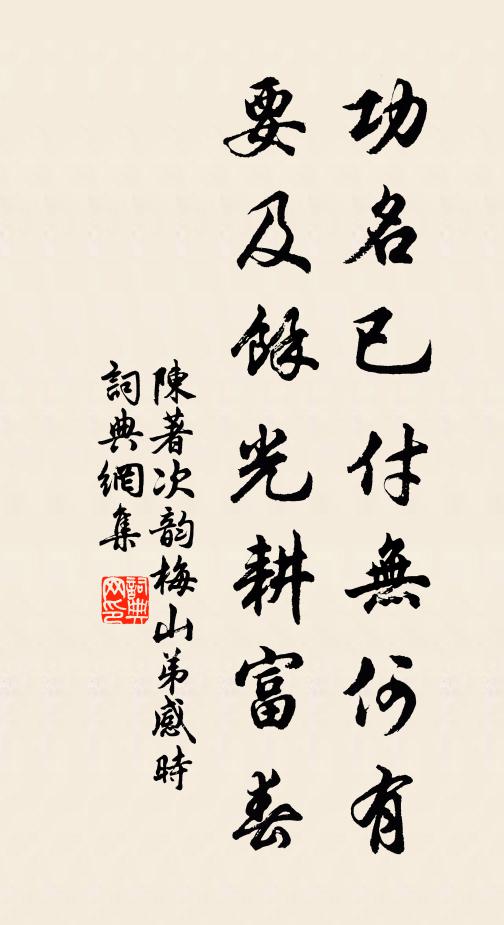 功名已付無何有
要及餘光耕富春
陳著次韵梅山弟感時
詞典網集
詞典網印